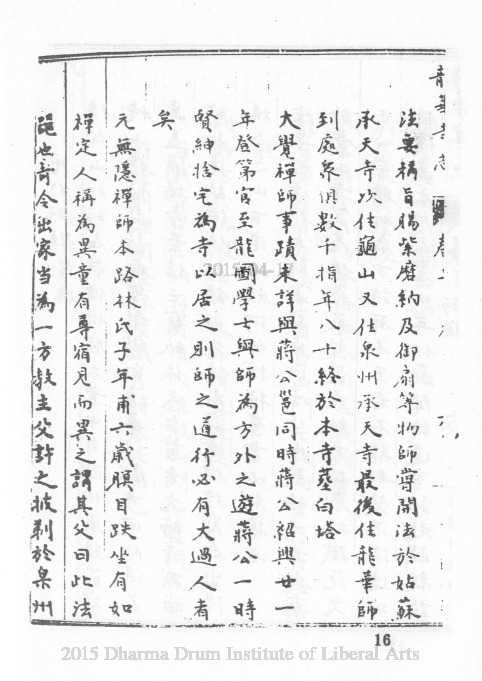 法要稱旨賜紫磨衲及御扇等物師嘗開法於姑蘇
承天寺次住龜山又住泉州承天寺最後住龍華師
到處衆俱數千指年八十終於本寺塟白塔
大覺禪師事蹟未詳與蔣公邕同時蔣公紹興廿一
年登第官至龍圖學士與師為方外之遊蔣公一時
賢紳捨宅為寺以居之則師之道行必有大過人者
矣
元無隱禪師本路林氏子年甫六歲瞑目趺坐有如
禪定人稱為異童有尊宿見而異之謂其父曰此法
器也可令出家当為一方教主父許之披剃於泉州
16
2015-04-17
2015 Dharma Drum Institute of Liberal Arts